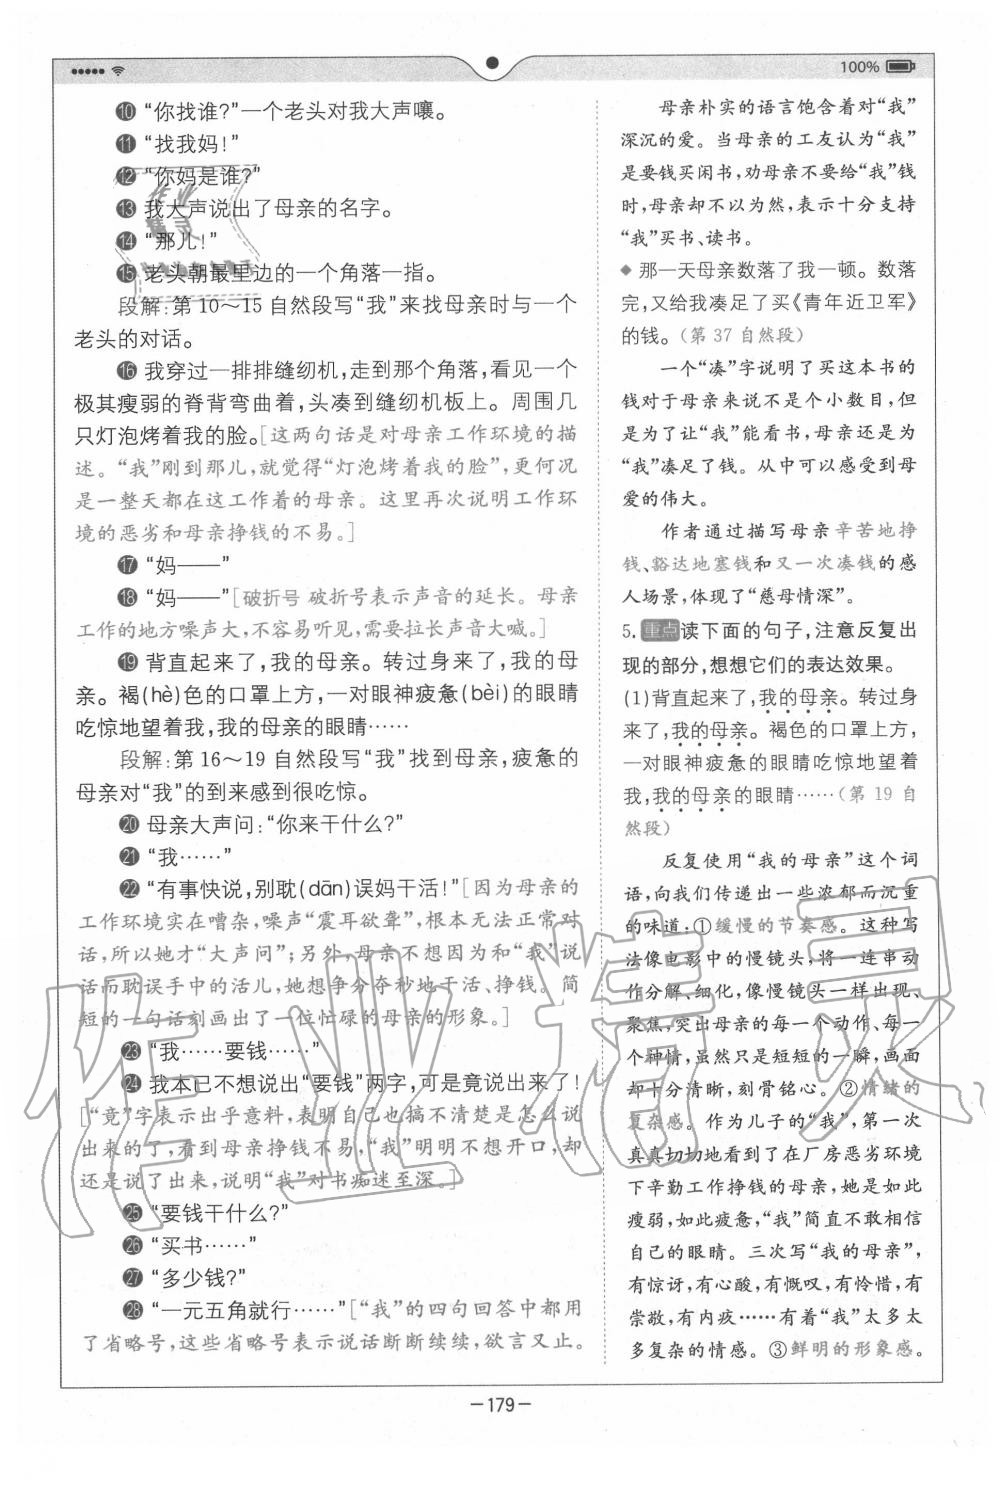 100%
⑩ “你找谁?”一个老头对我大声嚷。
⑪ “找我妈!”
⑫ “你妈是谁?”
⑬ 我大声说出了母亲的名字。
⑭ “那儿!”
⑮ 老头朝最里边的一个角落一指。
段解:第 10～15 自然段写“我”来找母亲时与一个
老头的对话。
⑯ 我穿过一排排缝纫机,走到那个角落,看见一个
极其瘦弱的脊背弯曲着,头凑到缝纫机板上。周围几
只灯泡烤着我的脸。[这两句话是对母亲工作环境的描
述。“我”刚到那儿,就觉得“灯泡烤着我的脸”,更何况
是一整天都在这工作着的母亲。这里再次说明工作环
境的恶劣和母亲挣钱的不易。]
⑰ “妈——”
⑱ “妈——”[破折号 破折号表示声音的延长。母亲
工作的地方噪声大,不容易听见,需要拉长声音大喊。]
⑲ 背直起来了,我的母亲。转过身来了,我的母
亲。褐(hè)色的口罩上方,一对眼神疲惫(bèi)的眼睛
吃惊地望着我,我的母亲的眼睛……
段解:第 16～19 自然段写“我”找到母亲,疲惫的
母亲对“我”的到来感到很吃惊。
⑳ 母亲大声问:“你来干什么?”
㉑ “我……”
㉒ “有事快说,别耽(dān)误妈干活!”[因为母亲的
工作环境实在嘈杂,噪声“震耳欲聋”,根本无法正常对
话,所以她才“大声问”;另外,母亲不想因为和“我”说
话而耽误手中的活儿,她想争分夺秒地干活、挣钱。简
短的一句话刻画出了一位忙碌的母亲的形象。]
㉓ “我……要钱……”
㉔ 我本已不想说出“要钱”两字,可是竟说出来了!
[“竟”字表示出乎意料,表明自己也搞不清楚是怎么说
出来的了,看到母亲挣钱不易,“我”明明不想开口,却
还是说了出来,说明“我”对书痴迷至深。]
㉕ “要钱干什么?”
㉖ “买书……”
㉗ “多少钱?”
㉘ “一元五角就行……”[“我”的四句回答中都用
了省略号,这些省略号表示说话断断续续,欲言又止。
母亲朴实的语言饱含着对“我”
深沉的爱。当母亲的工友认为“我”
是要钱买闲书,劝母亲不要给“我”钱
时,母亲却不以为然,表示十分支持
“我”买书、读书。
◆ 那一天母亲数落了我一顿。数落
完,又给我凑足了买《青年近卫军》
的钱。(第 37 自然段)
一个“凑”字说明了买这本书的
钱对于母亲来说不是个小数目,但
是为了让“我”能看书,母亲还是为
“我”凑足了钱。从中可以感受到母
爱的伟大。
作者通过描写母亲辛苦地挣
钱、豁达地塞钱和又一次凑钱的感
人场景,体现了“慈母情深”。
5. 重点 读下面的句子,注意反复出
现的部分,想想它们的表达效果。
(1)背直起来了,我的母亲。转过身
来了,我的母亲。褐色的口罩上方,
一对眼神疲惫的眼睛吃惊地望着
我,我的母亲的眼睛……(第 19 自
然段)
反复使用“我的母亲”这个词
语,向我们传递出一些浓郁而沉重
的味道:①缓慢的节奏感。这种写
法像电影中的慢镜头,将一连串动
作分解、细化,像慢镜头一样出现、
聚焦,突出母亲的每一个动作、每一
个神情,虽然只是短短的一瞬,画面
却十分清晰,刻骨铭心。②情绪的
复杂感。作为儿子的“我”,第一次
真真切切地看到了在厂房恶劣环境
下辛勤工作挣钱的母亲,她是如此
瘦弱,如此疲惫,“我”简直不敢相信
自己的眼睛。三次写“我的母亲”,
有惊讶,有心酸,有慨叹,有怜惜,有
崇敬,有内疚……有着“我”太多太
多复杂的情感。③鲜明的形象感。
—179—
作业精灵